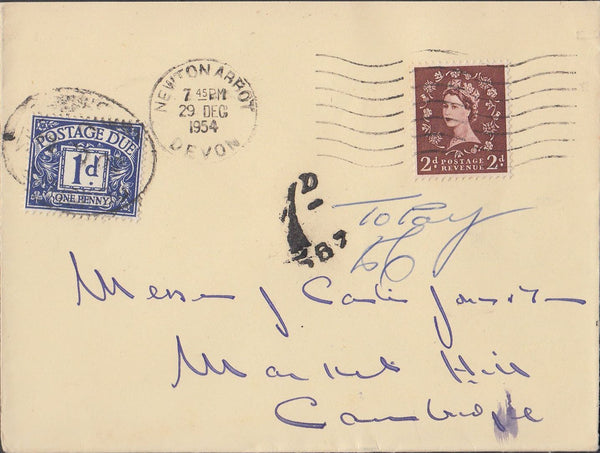 POSTAGE DUE
1d.
ONE PENNY
NEWTON ABBOT
7 45 PM
29 DEC
1954
DEVON
2d. POSTAGE REVENUE 2d.
1D
To Pay
Messrs J
Market Hill
Cambridge